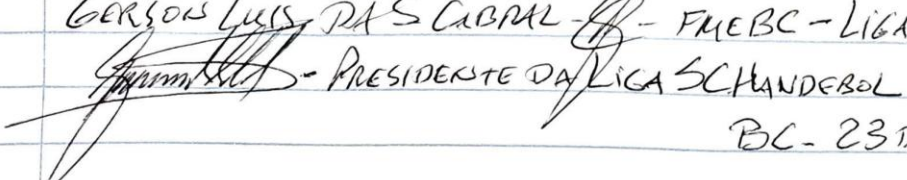 GERSON LUIS DA S CABRAL - FMEBC - LIGA
- PRESIDENTE DA LIGA SC HANDEBOL
BC - 23 D